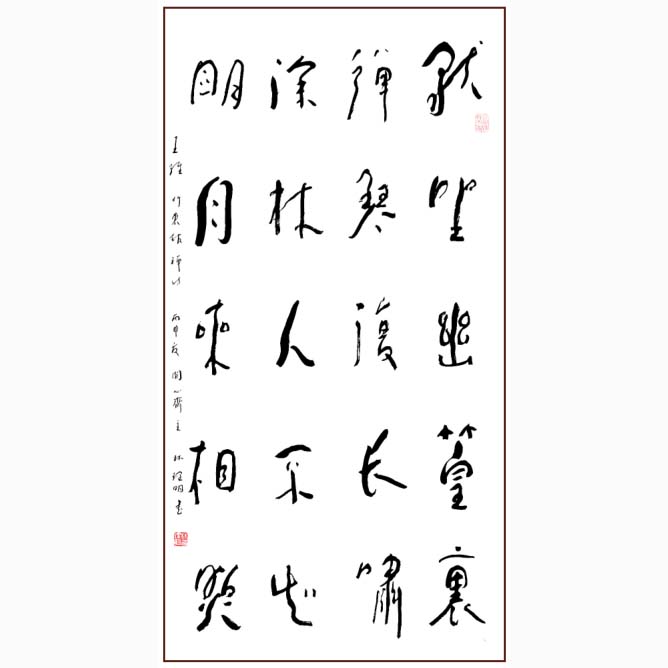 獨坐幽篁裏
彈琴復长嘯
深林人不知
明月來相照
王維竹裏館詩 丙申夏 心齋主 林明書